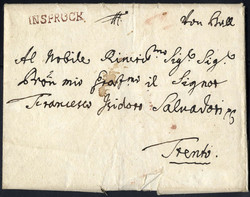 INSPRUCK. von Hall
Al Nobile Riveritmo Sigr Sigr
Prōn mio Gratmo il Signor
Francesco Isidoro Salvadori
Trento.